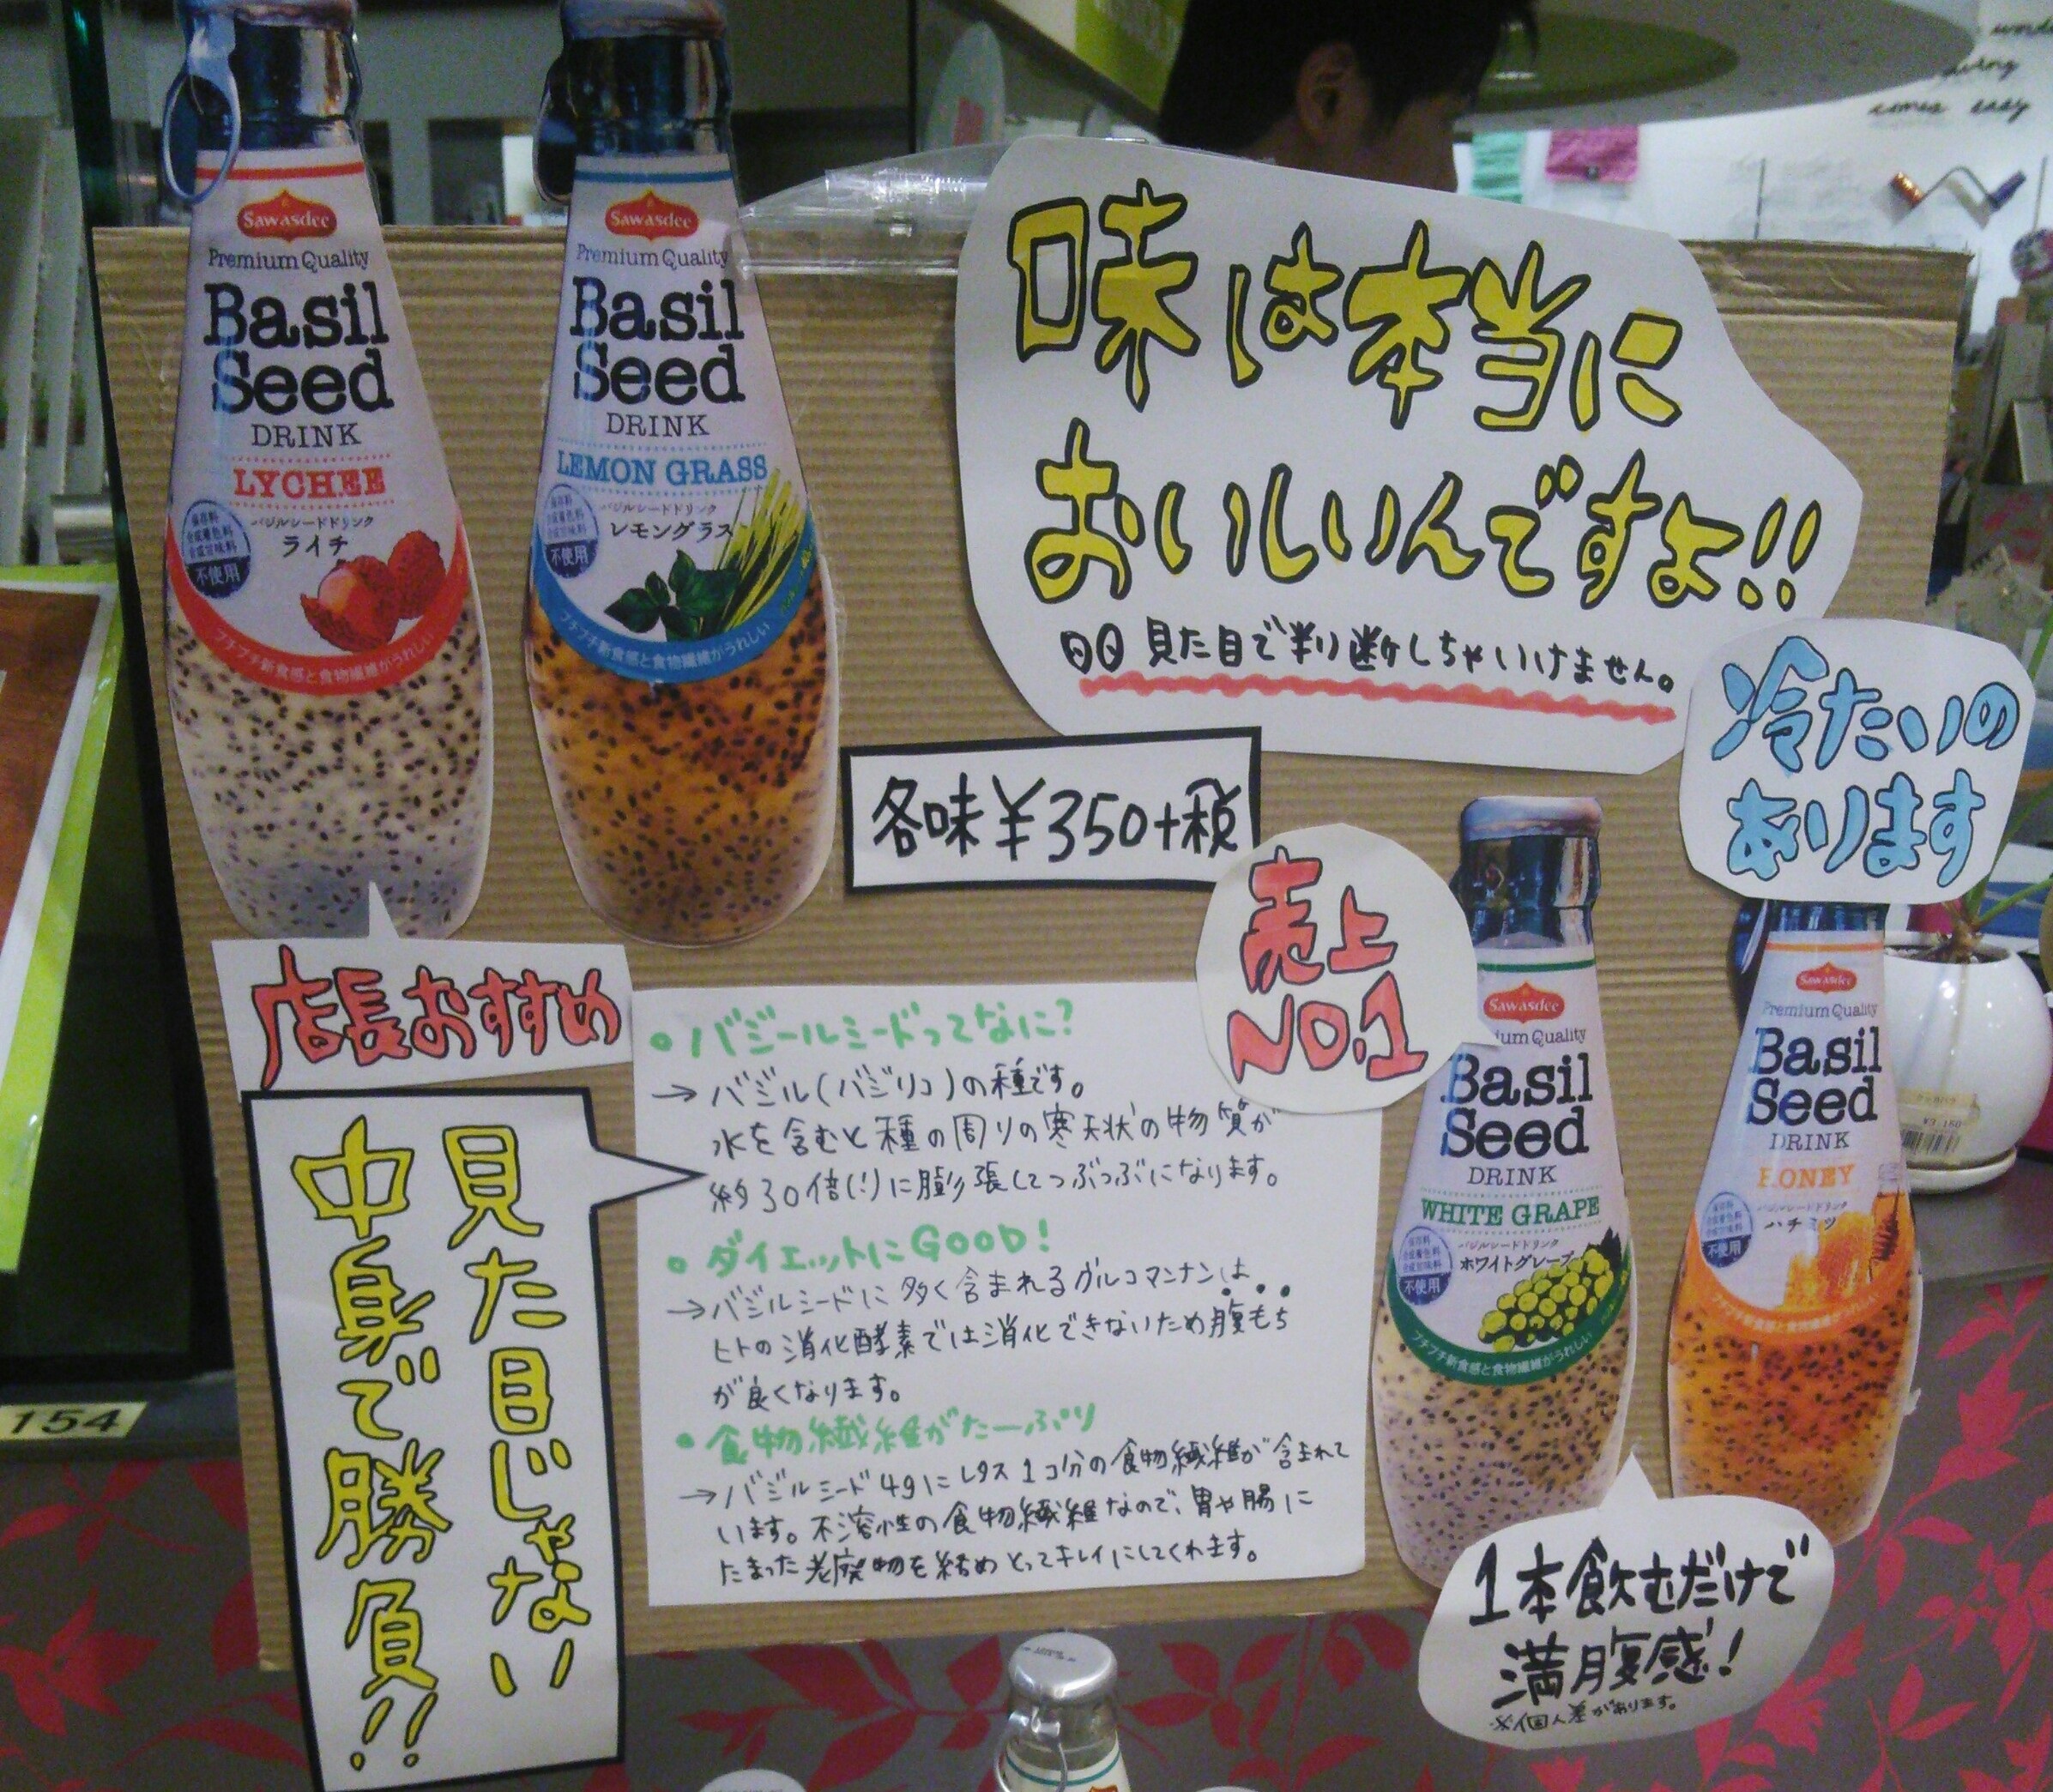 Sawasdee
Premium Quality
Basil
Seed
DRINK
LYCHEE
保存料
合成着色料
合成甘味料
不使用
バジルシードドリンク
ライチ
プチプチ新食感と食物繊維がうれしい
Sawasdee
Premium Quality
Basil
Seed
DRINK
LEMON GRASS
保存料
合成着色料
合成甘味料
不使用
バジルシードドリンク
レモングラス
プチプチ新食感と食物繊維がうれしい
味は本当に
おいしいんですよ!!
見た目で判断しちゃいけません。
冷たいの
あります
各味¥350+税
売上
NO.1
店長おすすめ
見た目じゃない
中身で勝負!!
バジールシードってなに?
→バジル(バジリコ)の種です。
水を含むと種の周りの寒天状の物質が
約30倍(!)に膨張してつぶつぶになります。
ダイエットにGOOD!
→バジルシードに多く含まれるグルコマンナンは
ヒトの消化酵素では消化できないため腹もち
が良くなります。
食物繊維がたーぷり
→バジルシード4gにレタス1コ分の食物繊維が含まれて
います。不溶性の食物繊維なので、胃や腸に
たまった老廃物を絡めとってキレイにしてくれます。
Sawasdee
ium Quality
Basil
Seed
DRINK
WHITE GRAPE
保存料
合成着色料
合成甘味料
不使用
バジルシードドリンク
ホワイトグレープ
プチプチ新食感と食物繊維がうれしい
Sawasdee
Premium Quality
Basil
Seed
DRINK
HONEY
保存料
合成着色料
合成甘味料
不使用
バジルシードドリンク
ハチミツ
プチプチ新食感と食物繊維がうれしい
1本飲むだけで
満腹感!
※個人差があります。
154
¥3,150
comes easy